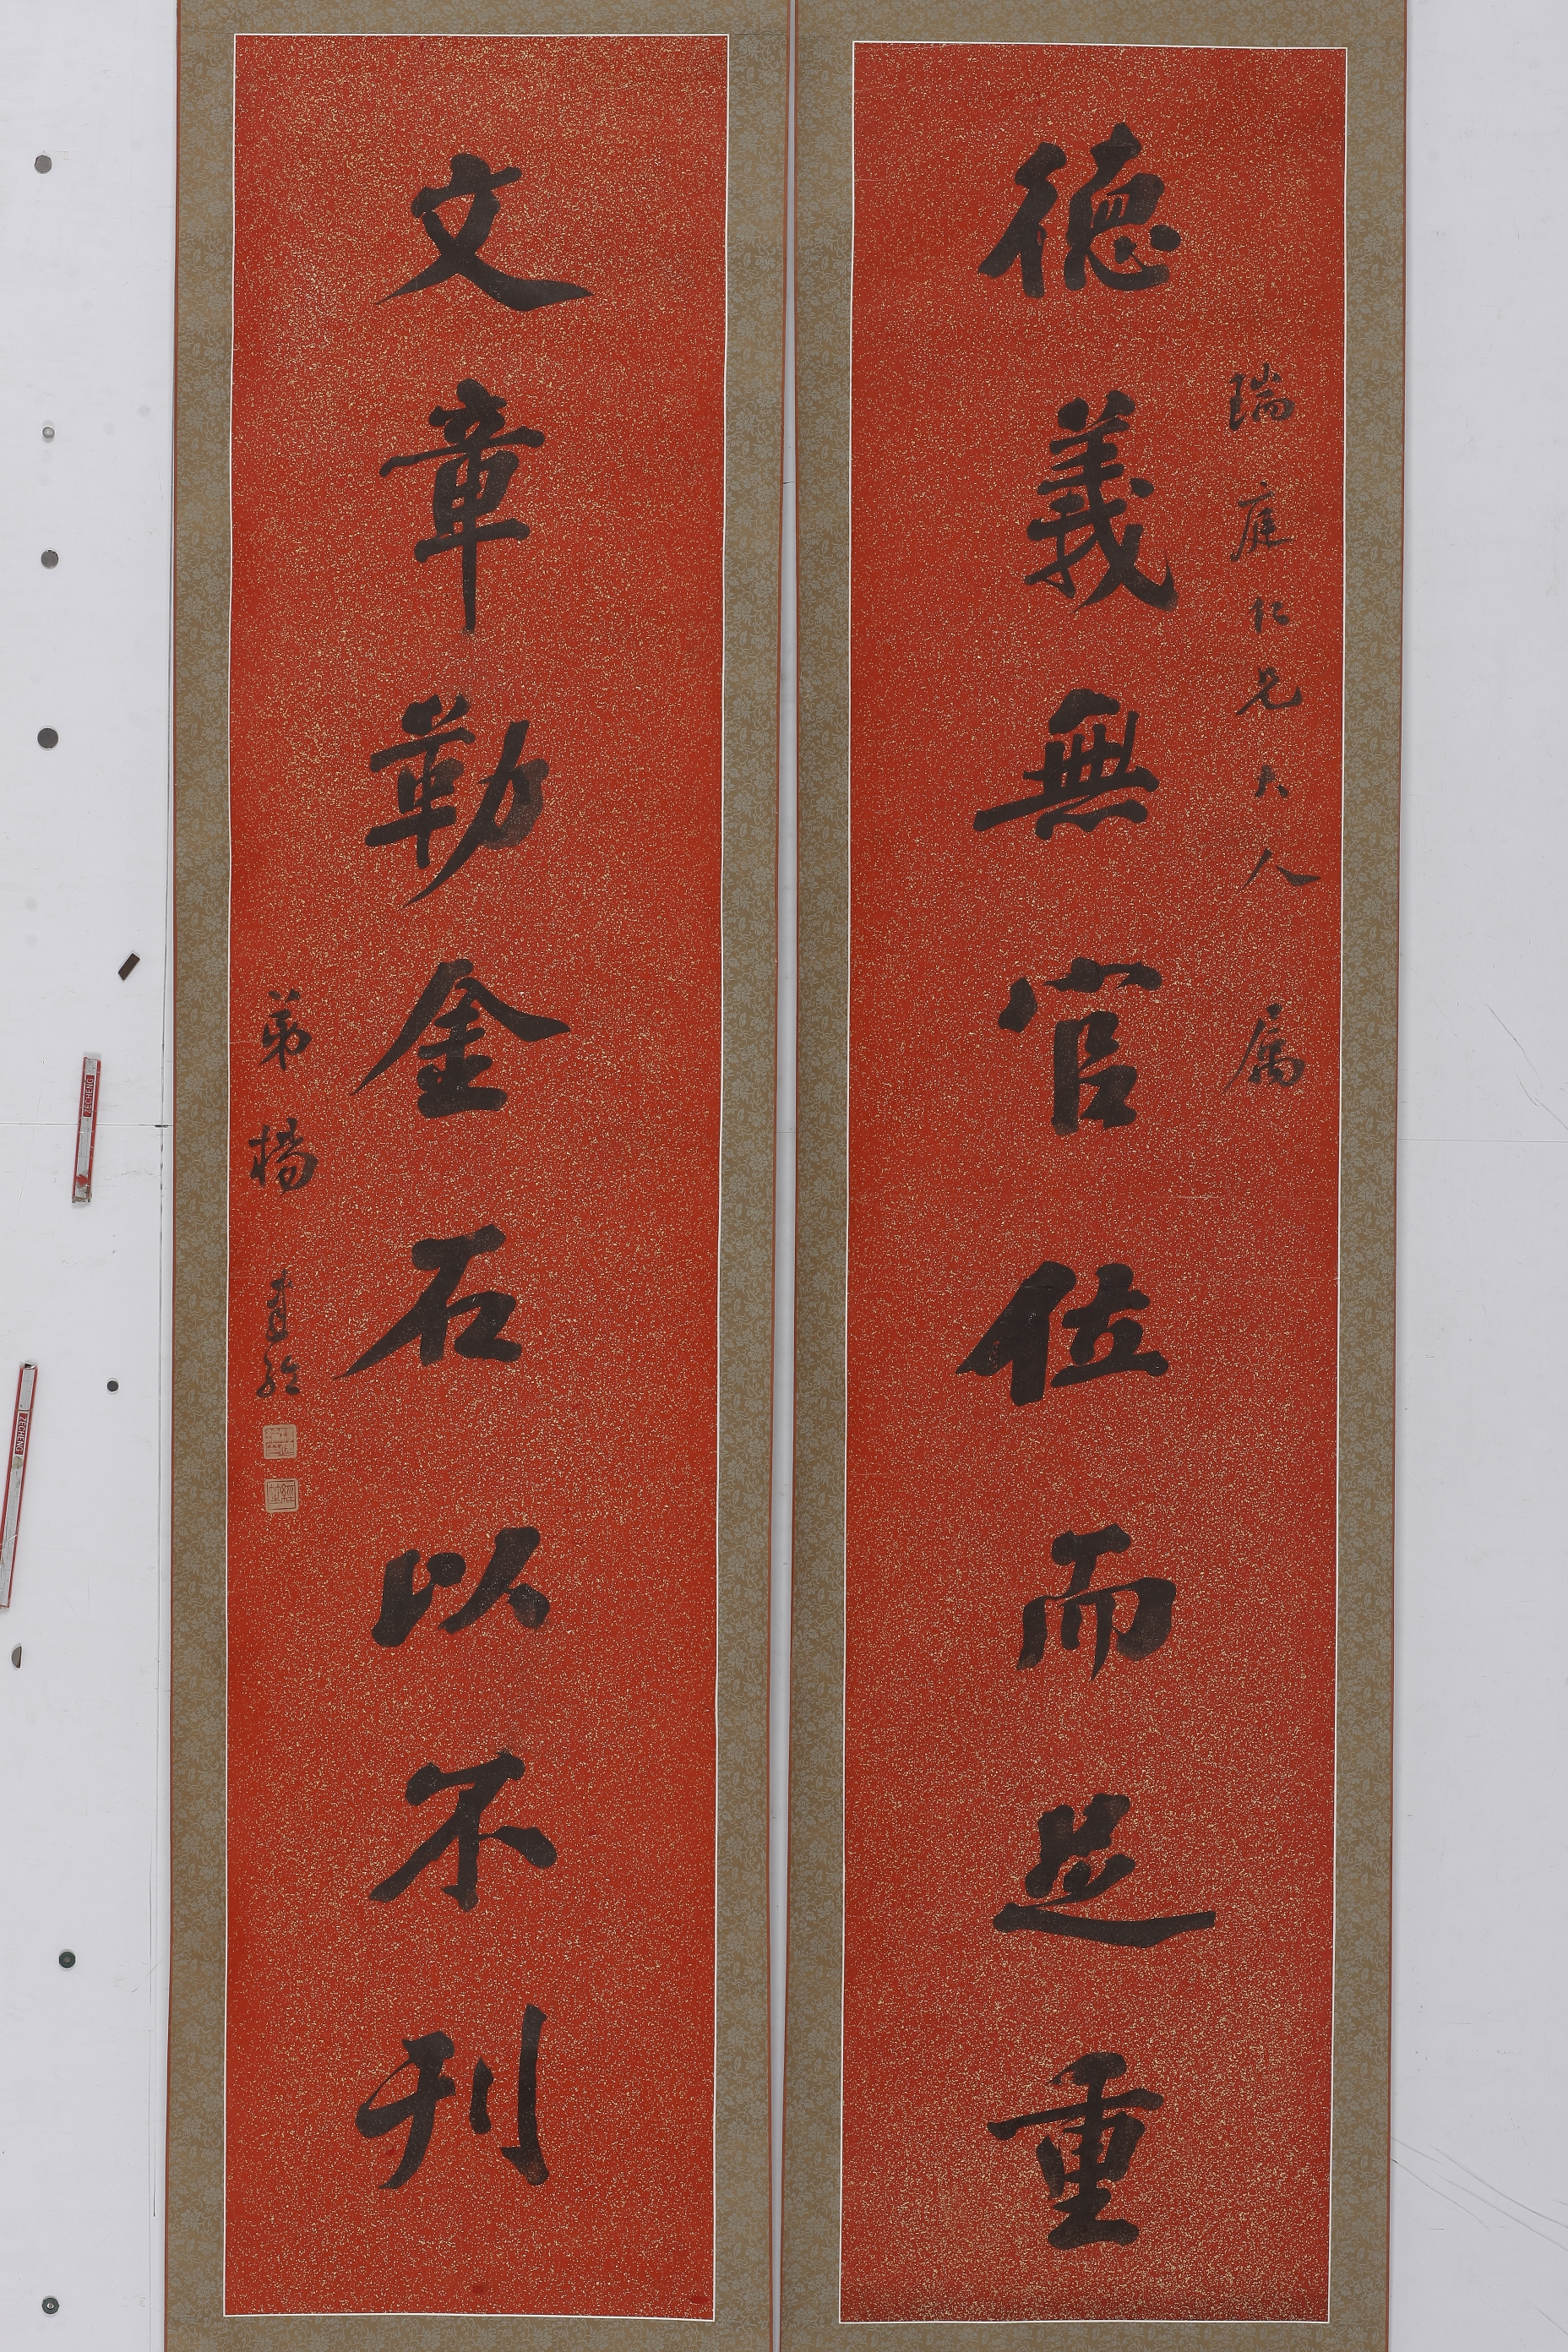 瑞庭仁兄大人属
德義無官位而足重
文章勒金石以不刊
弟楊
ZECHENG
ZECHENG